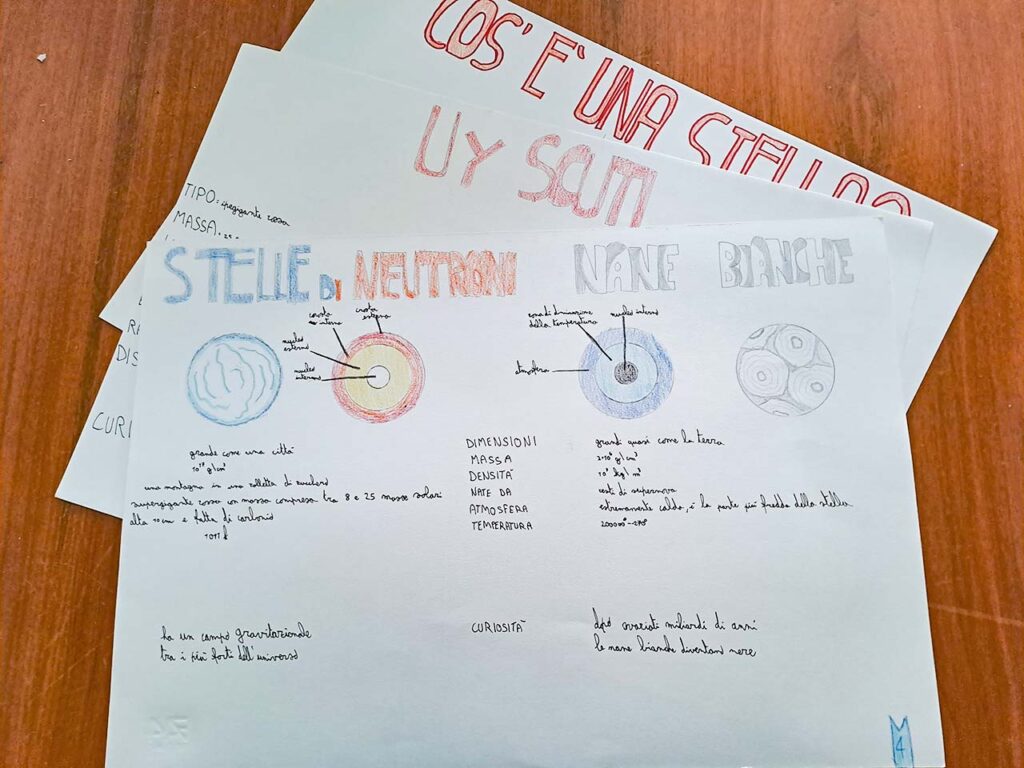 COS'È UNA STELLA
UY SCUTI
TIPO: ipergigante rossa
MASSA
CURI
STELLE DI NEUTRONI
NANE BIANCHE
crosta interna
crosta esterna
nucleo esterno
nucleo interno
zona di diminuzione della temperatura
nucleo interno
atmosfera
grande come una città
DIMENSIONI
grandi quasi come la terra
g/cm³
MASSA
g/cm³
una montagna in una zolletta di zucchero
DENSITÀ
kg/m³
supergigante rossa con massa compresa tra 8 e 25 masse solari
NATE DA
resti di supernova
alta 10 cm e fatta di carbonio
ATMOSFERA
estremamente calda, è la parte più fredda della stella
TEMPERATURA
ha un campo gravitazionale
tra i più forti dell'universo
CURIOSITÀ
dopo svariati miliardi di anni
le nane bianche diventano nere
4